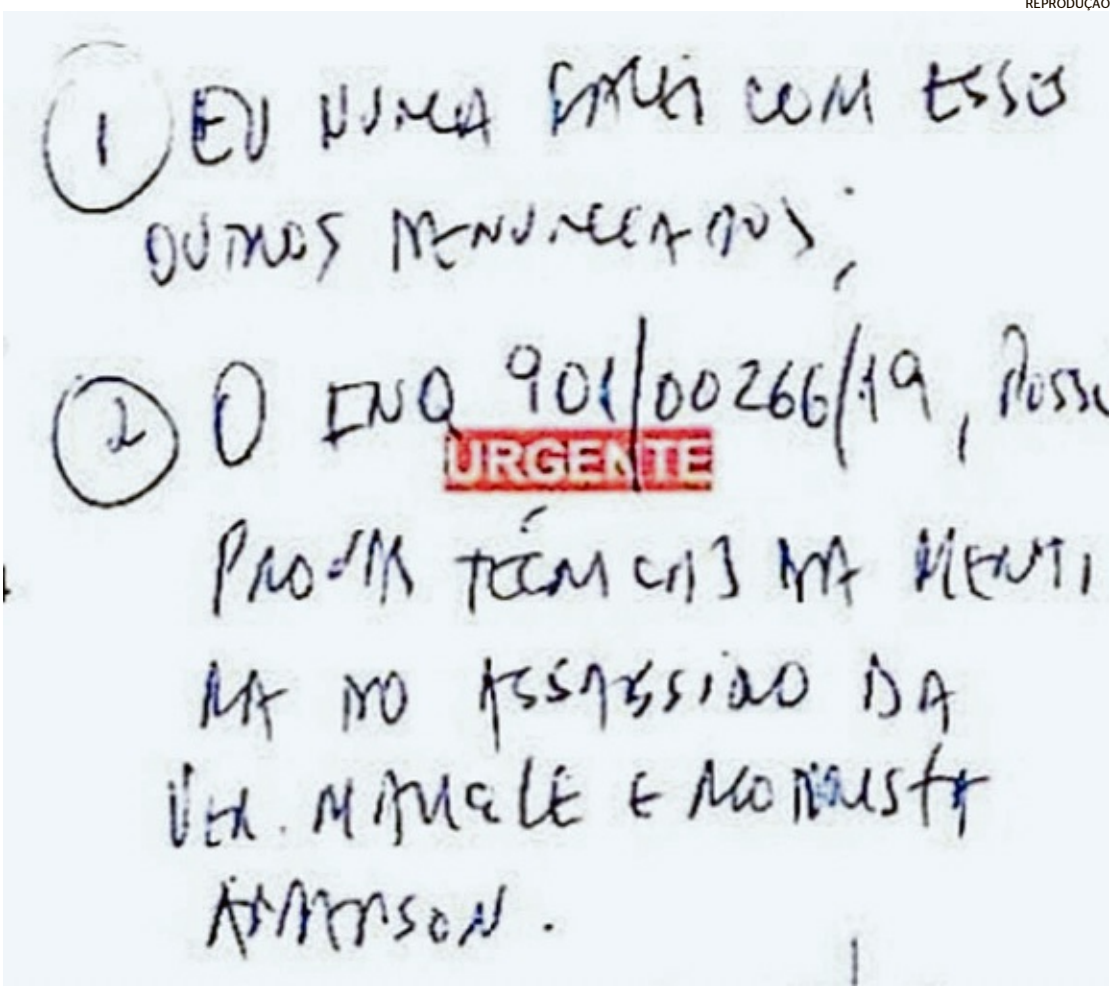 REPRODUÇÃO
1 EU NUNCA FALEI COM ESSES
OUTROS DENUNCIADOS;
2 O INQ 901/00266/19, POSSU
URGENTE
PROVAS TÉCNICAS DA MENTI
RA DO ASSASSINO DA
VER. MARIELLE E MOTORISTA
ANDERSON.